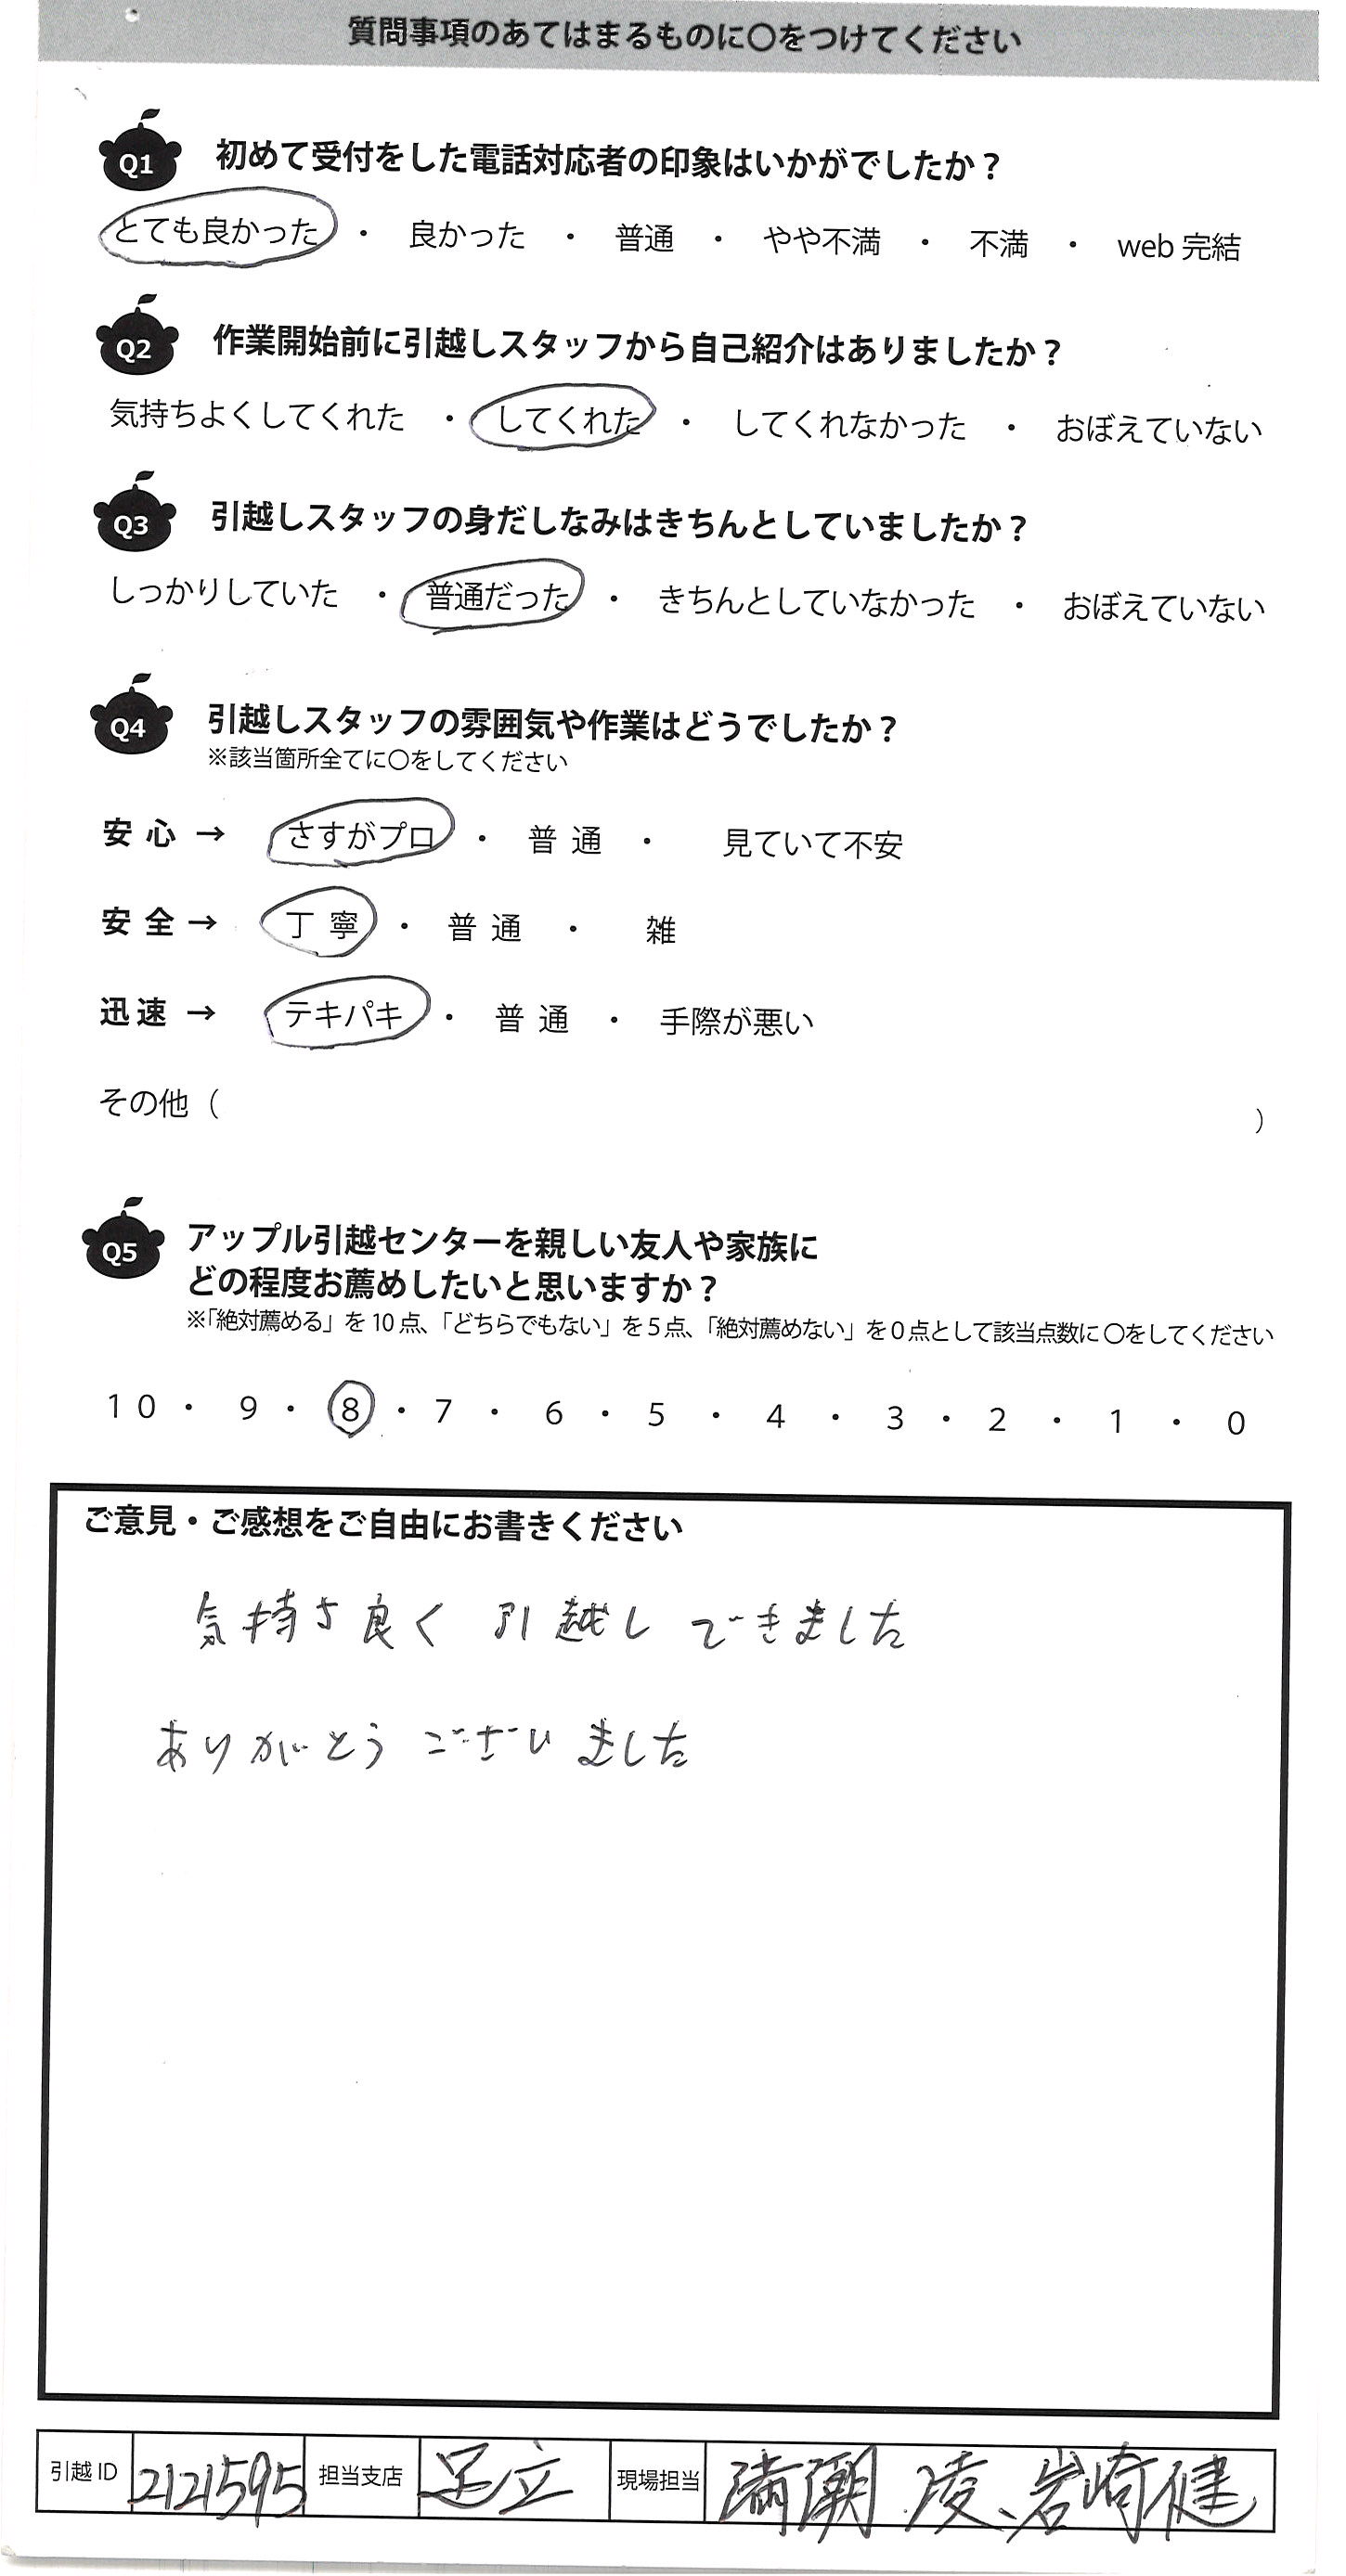 質問事項のあてはまるものに〇をつけてください
Q1 初めて受付をした電話対応者の印象はいかがでしたか？
とても良かった ・ 良かった ・ 普通 ・ やや不満 ・ 不満 ・ web 完結
Q2 作業開始前に引越しスタッフから自己紹介はありましたか？
気持ちよくしてくれた ・ してくれた ・ してくれなかった ・ おぼえていない
Q3 引越しスタッフの身だしなみはきちんとしていましたか？
しっかりしていた ・ 普通だった ・ きちんとしていなかった ・ おぼえていない
Q4 引越しスタッフの雰囲気や作業はどうでしたか？
※該当箇所全てに〇をしてください
安心 → さすがプロ ・ 普通 ・ 見ていて不安
安全 → 丁寧 ・ 普通 ・ 雑
迅速 → テキパキ ・ 普通 ・ 手際が悪い
その他（ ）
Q5 アップル引越センターを親しい友人や家族に
どの程度お薦めしたいと思いますか？
※「絶対薦める」を10点、「どちらでもない」を5点、「絶対薦めない」を0点として該当点数に〇をしてください
10 ・ 9 ・ 8 ・ 7 ・ 6 ・ 5 ・ 4 ・ 3 ・ 2 ・ 1 ・ 0
ご意見・ご感想をご自由にお書きください
気持ち良く 引越し できました
ありがとう ございました
引越ID 2121595 担当支店 足立 現場担当 満潮 凌、岩崎健